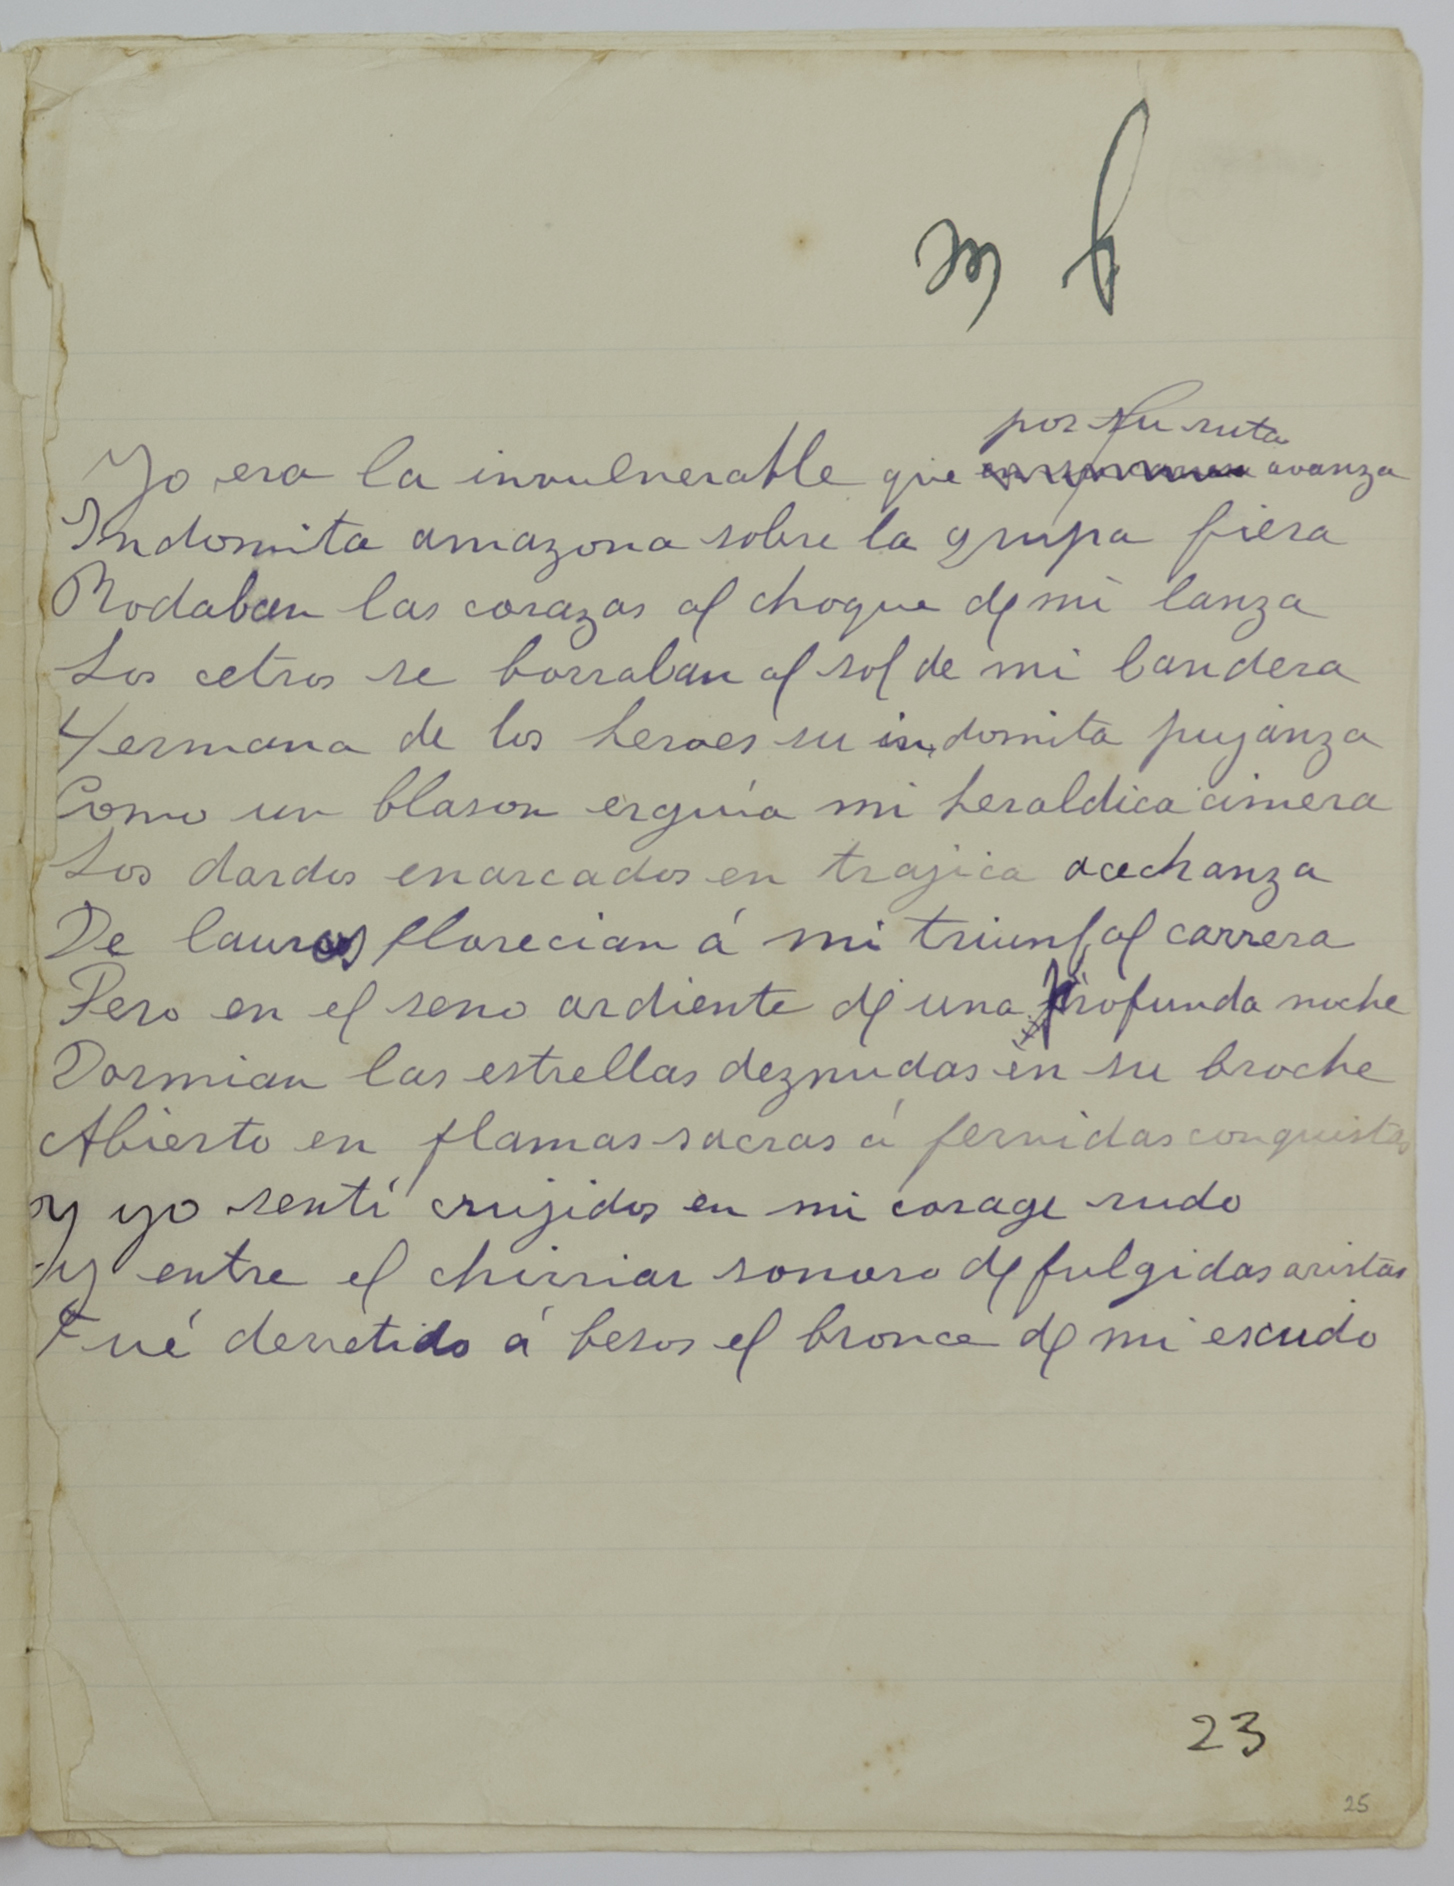 m b
por su ruta
Yo era la invulnerable que avanza
Indomita amazona sobre la grupa fiera
Rodaban las corazas al choque de mi lanza
Los cetros se borraban al sol de mi bandera
Hermana de los heroes su indomita pujanza
Como un blason erguía mi heraldica cimera
Los dardos enarcados en trajica acechanza
De lauros florecian á mi triunfal carrera
Pero en el seno ardiente de una profunda noche
Dormian las estrellas deznudas en su broche
Abierto en flamas sacras á fervidas conquistas
Y yo sentí crujidos en mi corage rudo
Y entre el chirriar sonoro de fulgidas aristas
Fué derretido á besos el bronce de mi escudo
23
25